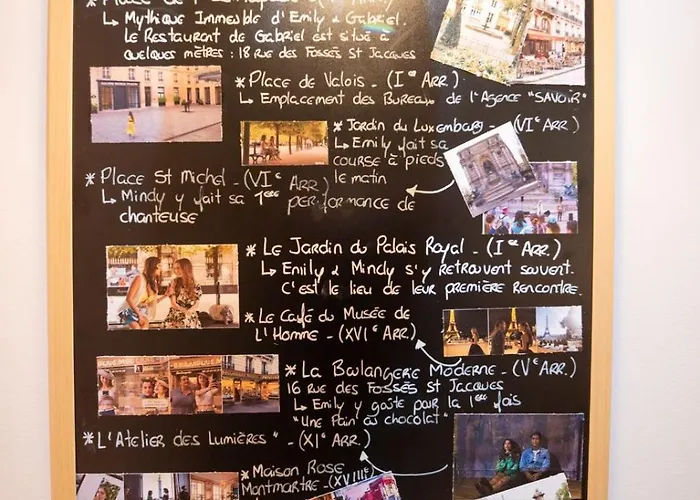 * Place de l'
↳ Mythique Immeuble d'Emily & Gabriel.
Le Restaurant de Gabriel est situé à
quelques mètres : 18 rue des Fossés St Jacques
* Place de Valois - (Ier Arr.)
↳ Emplacement des Bureaux de l'Agence "SAVOIR"
* Jardin du Luxembourg - (VIe Arr)
↳ Emily fait sa
course à pieds
le matin
* Place St Michel - (VIe Arr)
↳ Mindy y fait sa 1ère performance de
chanteuse
* Le Jardin du Palais Royal - (Ier Arr.)
↳ Emily & Mindy s'y retrouvent souvent.
C'est le lieu de leur première rencontre.
* Le Café du Musée de
l'Homme - (XVIe Arr.)
* La Boulangerie Moderne - (Ve Arr.)
16 rue des Fossés St Jacques
↳ Emily y goûte pour la 1ère fois
"Une Pain au chocolat"
* L'Atelier des Lumières" - (XIe Arr.)
* Maison Rose
Montmartre - (XVIIIe